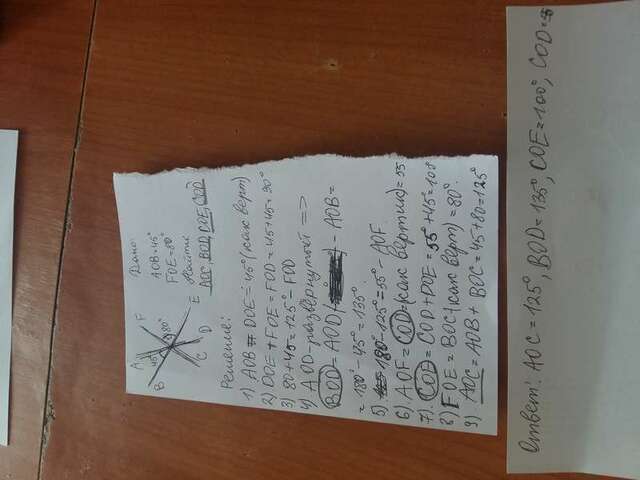 A
F
B
45°
80°
C
D
E
Дано:
AOB=45°
FOE=80°
Найти
AOC, BOD, COE, COD
Решение:
1) AOB = DOE = 45° (как верт)
2) DOE + FOE = FOD = 45+45=90°
3) 80+45=125° - FOD
4) AOD - развёрнутый =>
BOD = AOD - AOB =
= 180° - 45° = 135°.
5) 180° - 125° = 55° - AOF.
6) AOF = COD = (как вертик) = 55
7). COE = COD + DOE = 55° + 45° = 108
8) FOE = BOC (как верт) = 80°.
9) AOC = AOB + BOC = 45+80=125°
Ответ: AOC = 125°, BOD = 135°, COE = 100°, COD = 55